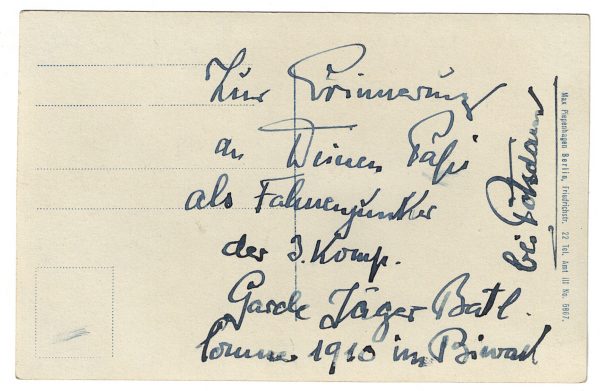 Zur Erinnerung
an Deinen Papi
als Fahnenjunker
der 3. Komp.
Garde Jäger Batl.
Sommer 1910 im Biwak
bei Potsdam
Max Piepenhagen Berlin, Friedrichstr. 22 Tel. Amt III No. 5867.